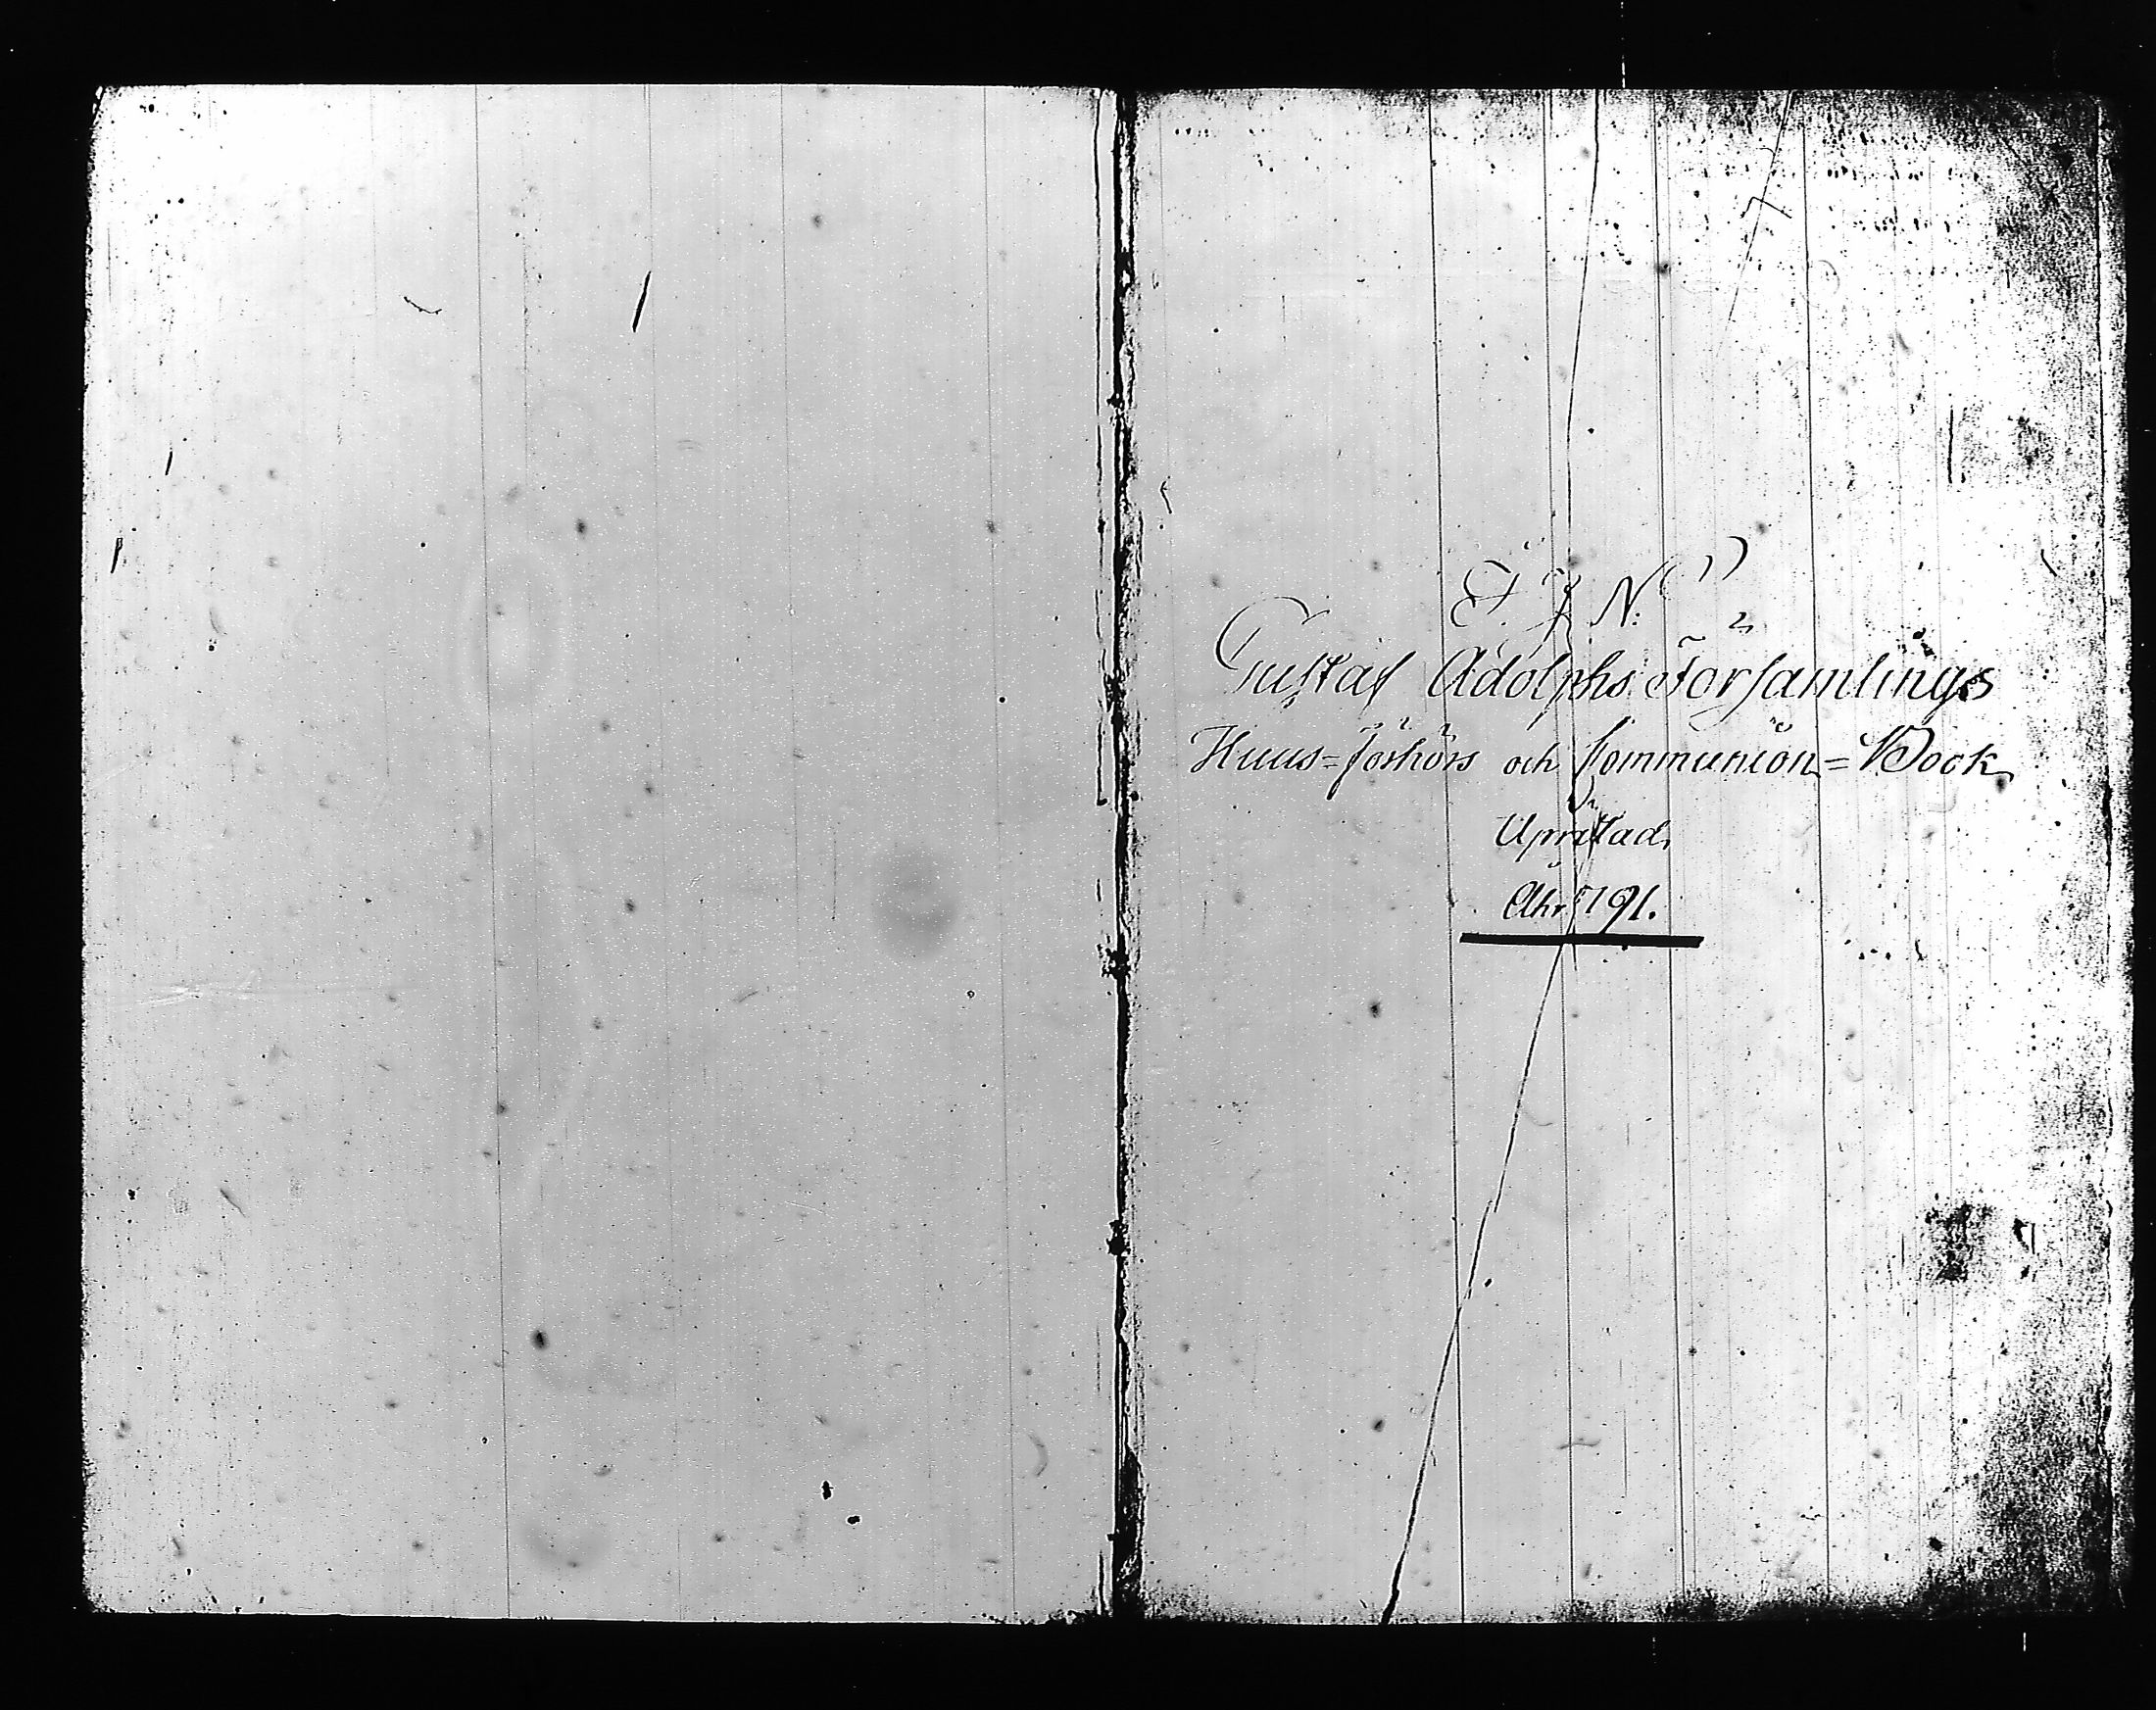 N:
2
Gustaf Adolphs Församlings
Huus=förhörs och Communion=Book
Uprättad
Åhr 1791.